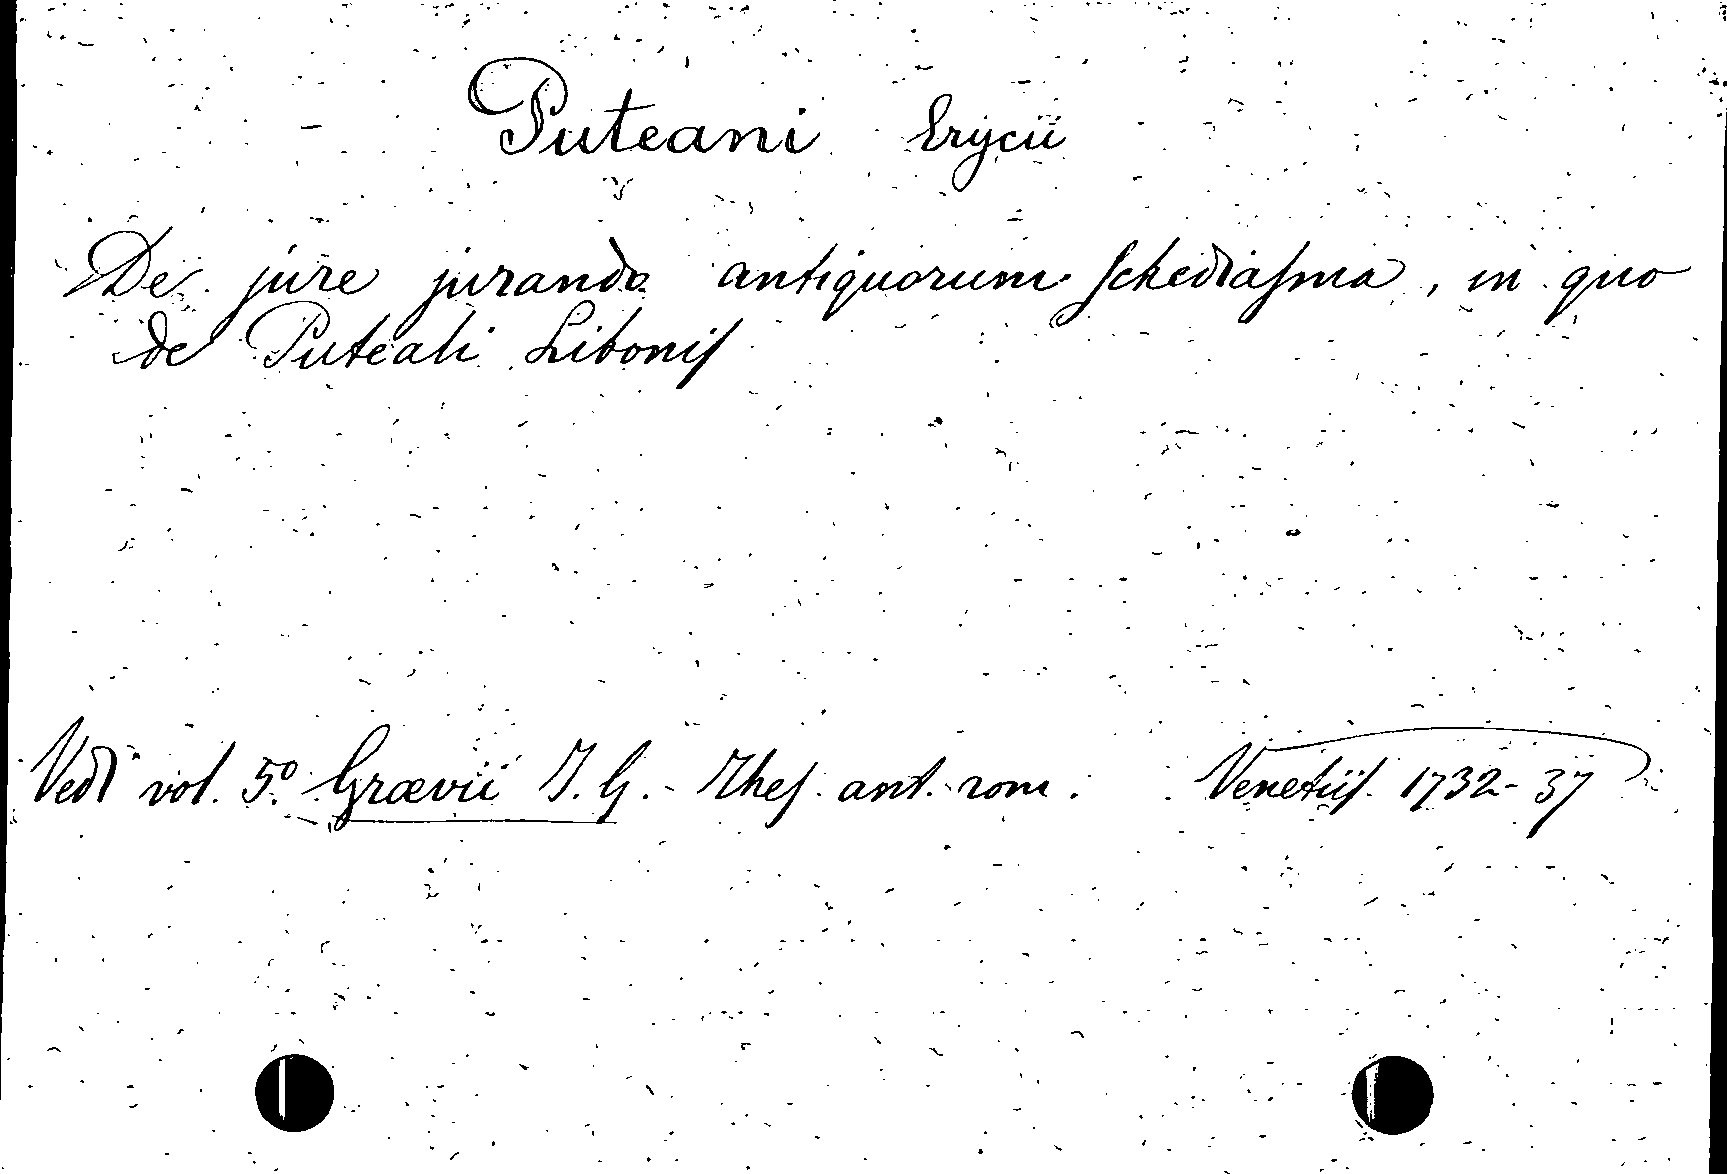 Puteani Erycii
De jure jurando antiquorum schediasma, in quo
de Puteali Libonis
Vedi vol. 5º Grævii J. G. - Thes. ant. rom. Venetiis. 1732-37